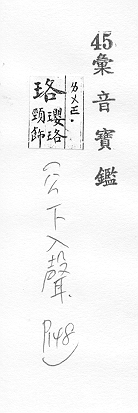 45彙音寶鑑
珞
瓔珞
頸飾
(公下入聲 P148)